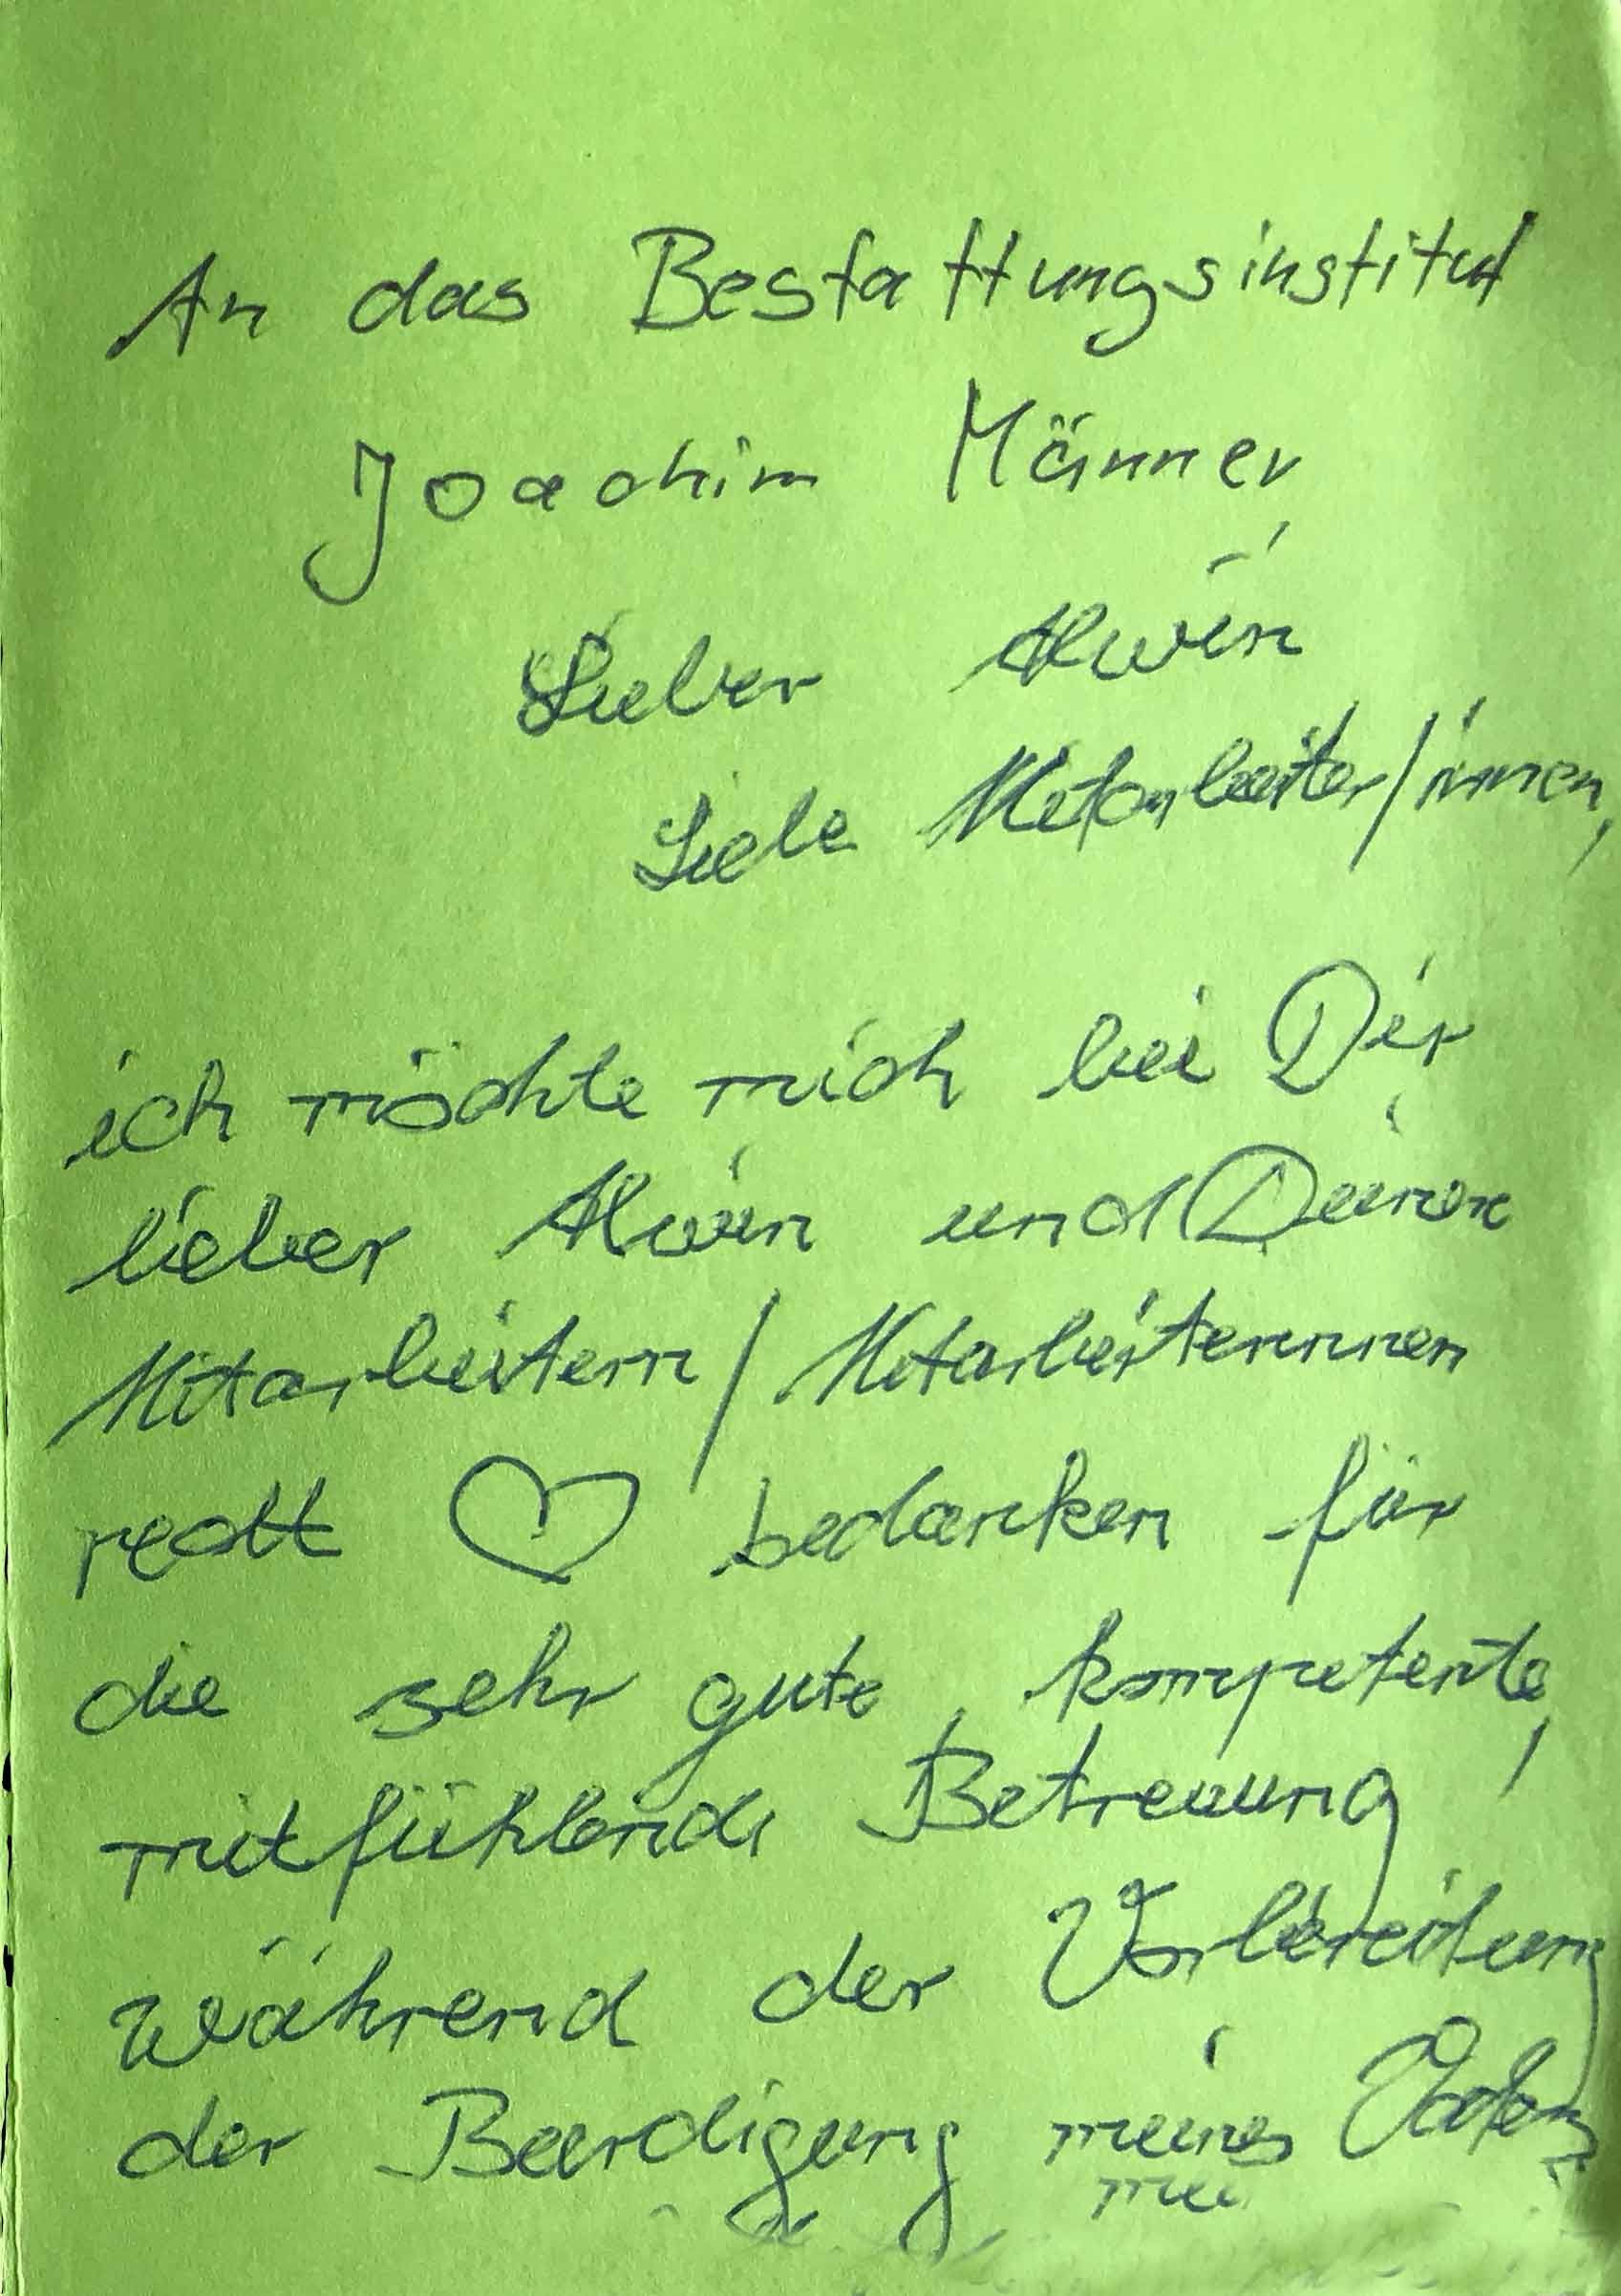 An das Bestattungsinstitut
Joachim Männer
Lieber Alwin
Liebe Mitarbeiter/innen,
ich möchte mich bei Dir
lieber Alwin und Deinen
Mitarbeitern/Mitarbeiterinnen
recht ♡ bedanken für
die sehr gute, kompetente,
mitfühlende Betreuung
während der Vorbereitung
der Beerdigung meines Vaters